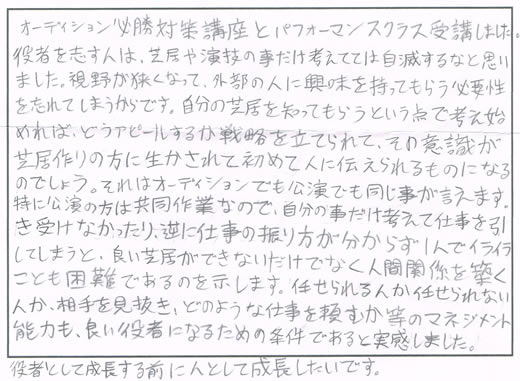 オーディション必勝対策講座とパフォーマンスクラス受講しました。
役者を志す人は、芝居や演技の事だけ考えてては自滅するなと思い
ました。視野が狭くなって、外部の人に興味を持ってもらう必要性
を忘れてしまうからです。自分の芝居を知ってもらうという点で考え始
めれば、どうアピールするか戦略を立てられて、その意識が
芝居作りの方に生かされて初めて人に伝えられるものになる
のでしょう。それはオーディションでも公演でも同じ事が言えます。
特に公演の方は共同作業なので、自分の事だけ考えて仕事を引
き受けなかったり、逆に仕事の振り方が分からず1人でイライラ
してしまうと、良い芝居ができないだけでなく人間関係を築く
ことも困難であるのを示します。任せられる人か任せられない
人か、相手を見抜き、どのような仕事を頼むか等のマネジメント
能力も、良い役者になるための条件であると実感しました。
役者として成長する前に人として成長したいです。